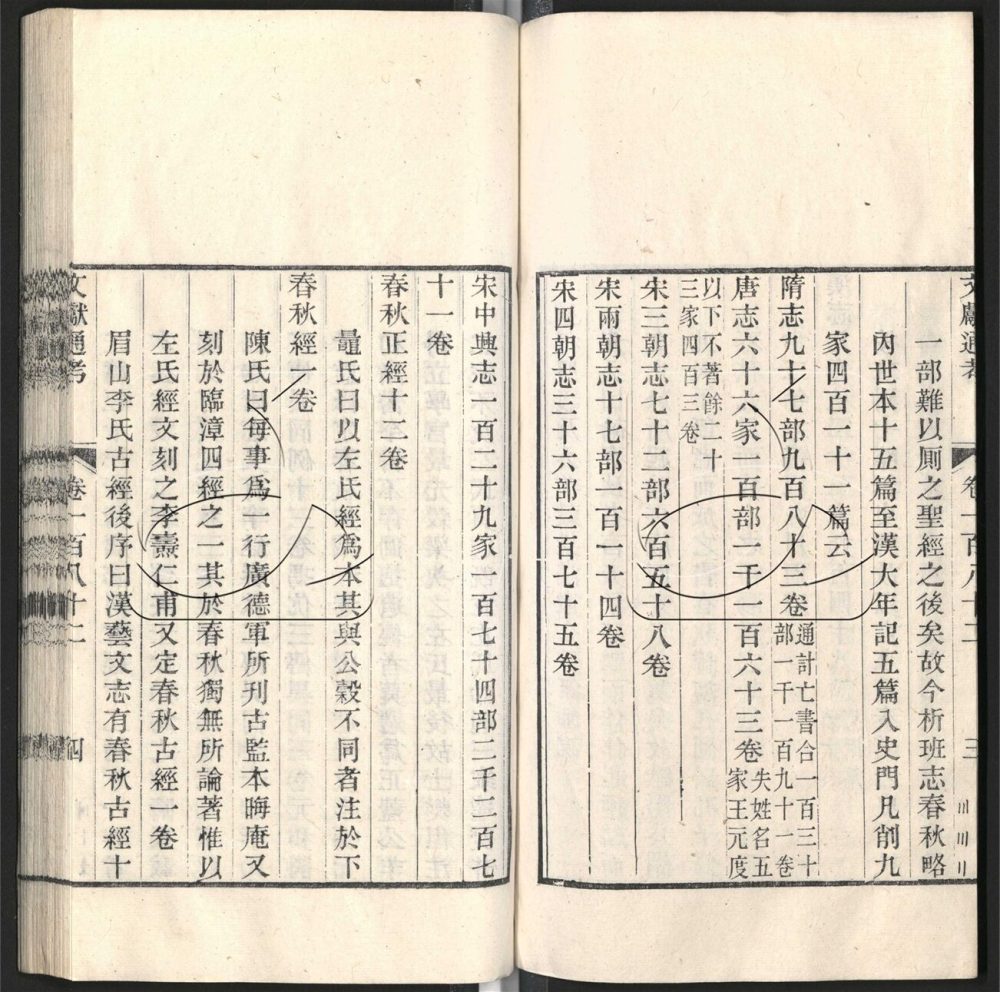 文獻通考 卷一百八十二 三
一部難以厠之聖經之後矣故今析班志春秋略
內世本十五篇至漢大年記五篇入史門凡削九
家四百一十一篇云
隋志九十七部九百八十三卷通計亡書合一百三十
部一千一百九十一卷
唐志六十六家一百部一千一百六十三卷失姓名五
家王元度
以下不著餘二十
三家四百三卷
宋三朝志七十二部六百五十八卷
宋兩朝志十七部一百一十四卷
宋四朝志三十六部三百七十五卷
宋中興志一百二十九家一百七十四部二千三百七
十一卷
春秋正經十二卷
鼂氏曰以左氏經爲本其與公穀不同者注於下
春秋經一卷
陳氏曰每事爲一行廣德軍所刊古監本晦庵又
刻於臨漳四經之一其於春秋獨無所論著惟以
左氏經文刻之李燾仁甫又定春秋古經一卷
眉山李氏古經後序曰漢藝文志有春秋古經十
文獻通考 卷一百八十二 四